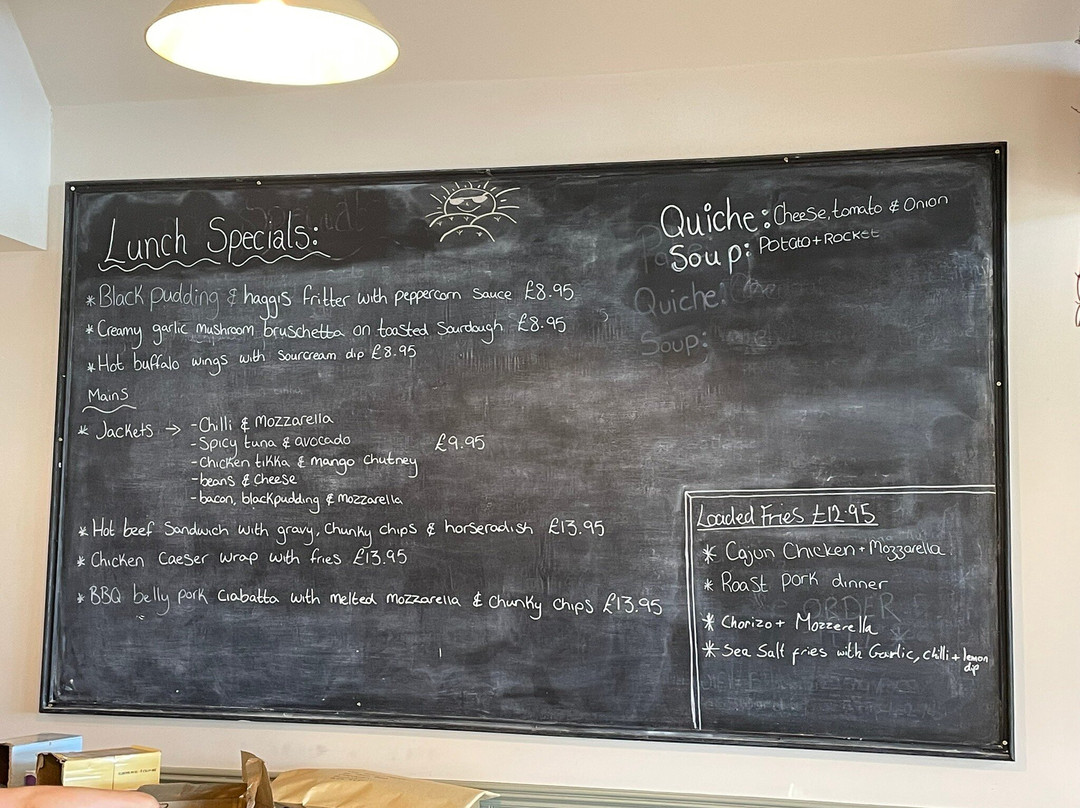 Lunch Specials:
* Black pudding & haggis fritter with peppercorn sauce £8.95
* Creamy garlic mushroom bruschetta on toasted Sourdough £8.95
* Hot buffalo wings with sourcream dip £8.95
Mains
* Jackets → - Chilli & Mozzarella
- Spicy tuna & avocado £9.95
- Chicken tikka & mango chutney
- beans & Cheese
- bacon, blackpudding & Mozzarella
* Hot beef Sandwich with gravy, Chunky chips & horseradish £13.95
* Chicken Caeser wrap with fries £13.95
* BBQ belly pork Ciabatta with melted Mozzarella & Chunky chips £13.95
Quiche: Cheese, tomato & Onion
Soup: Potato + Rocket
Quiche:
Soup:
Loaded Fries £12.95
* Cajun Chicken + Mozzarella
* Roast pork dinner
ORDER
* Chorizo + Mozzerella
* Sea Salt fries with Garlic, chilli + lemon
dip